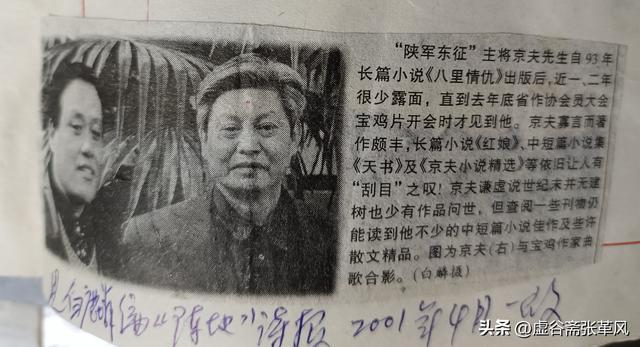 “陕军东征”主将京夫先生自93年
长篇小说《八里情仇》出版后，近一、二年
很少露面，直到去年底省作协会员大会
宝鸡片开会时才见到他。京夫寡言而著
作颇丰，长篇小说《红娘》、中短篇小说集
《天书》及《京夫小说精选》等依旧让人有
“刮目”之叹！京夫谦虚说世纪末并无建
树也少有作品问世，但查阅一些刊物仍
能读到他不少的中短篇小说佳作及些许
散文精品。图为京夫(右)与宝鸡作家曲
歌合影。(白麟摄)
见白麟编《阵地》诗报 2001年4月
头条 @虚谷斋张革风